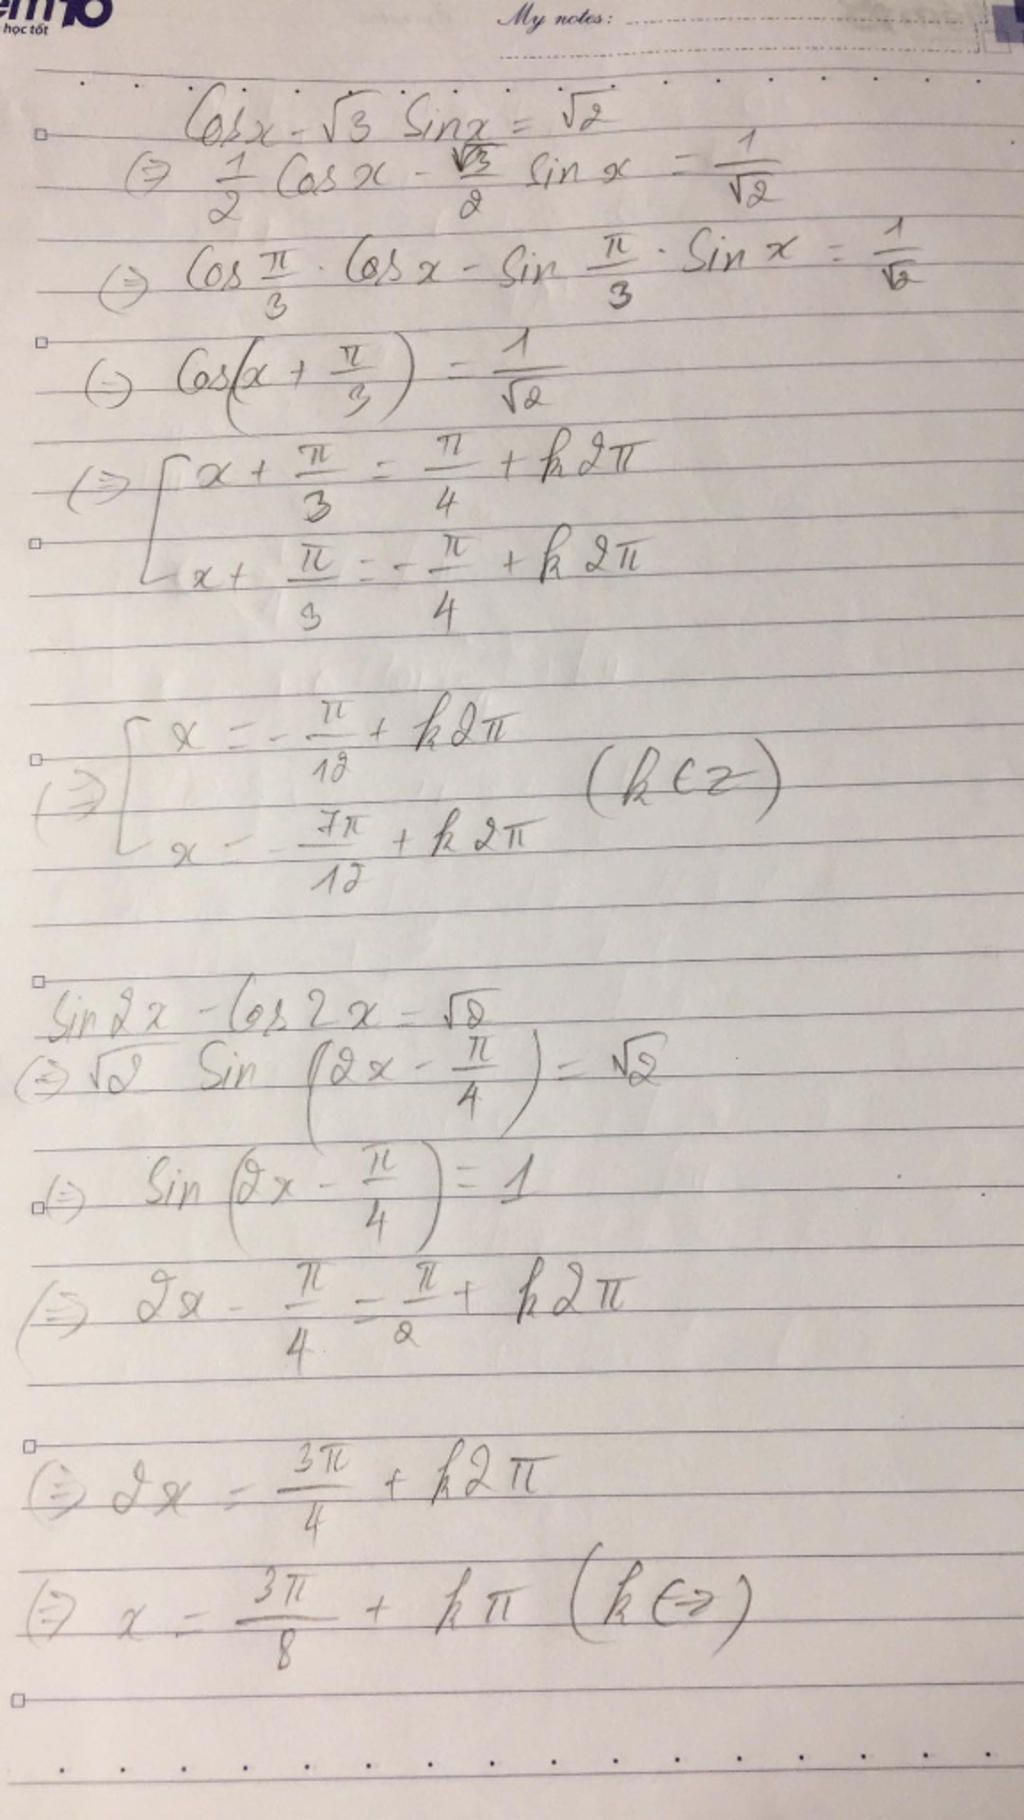 em10
học tốt
My notes:
Cosx - √3 Sinx = √2
(=) 1/2 Cosx - √3/2 sin x = 1/√2
(=) Cos π/3 . Cosx - Sin π/3 . Sin x = 1/√2
(=) Cos(x + π/3) = 1/√2
(=) [ x + π/3 = π/4 + k2π
x + π/3 = - π/4 + k2π
(=) [ x = - π/12 + k2π
(k ∈ z)
x = - 7π/12 + k2π
Sin2x - Cos2x = √2
(=) √2 Sin (2x - π/4) = √2
(=) Sin (2x - π/4) = 1
(=) 2x - π/4 = π/2 + k2π
(=) 2x = 3π/4 + k2π
(=) x = 3π/8 + kπ (k ∈ z)